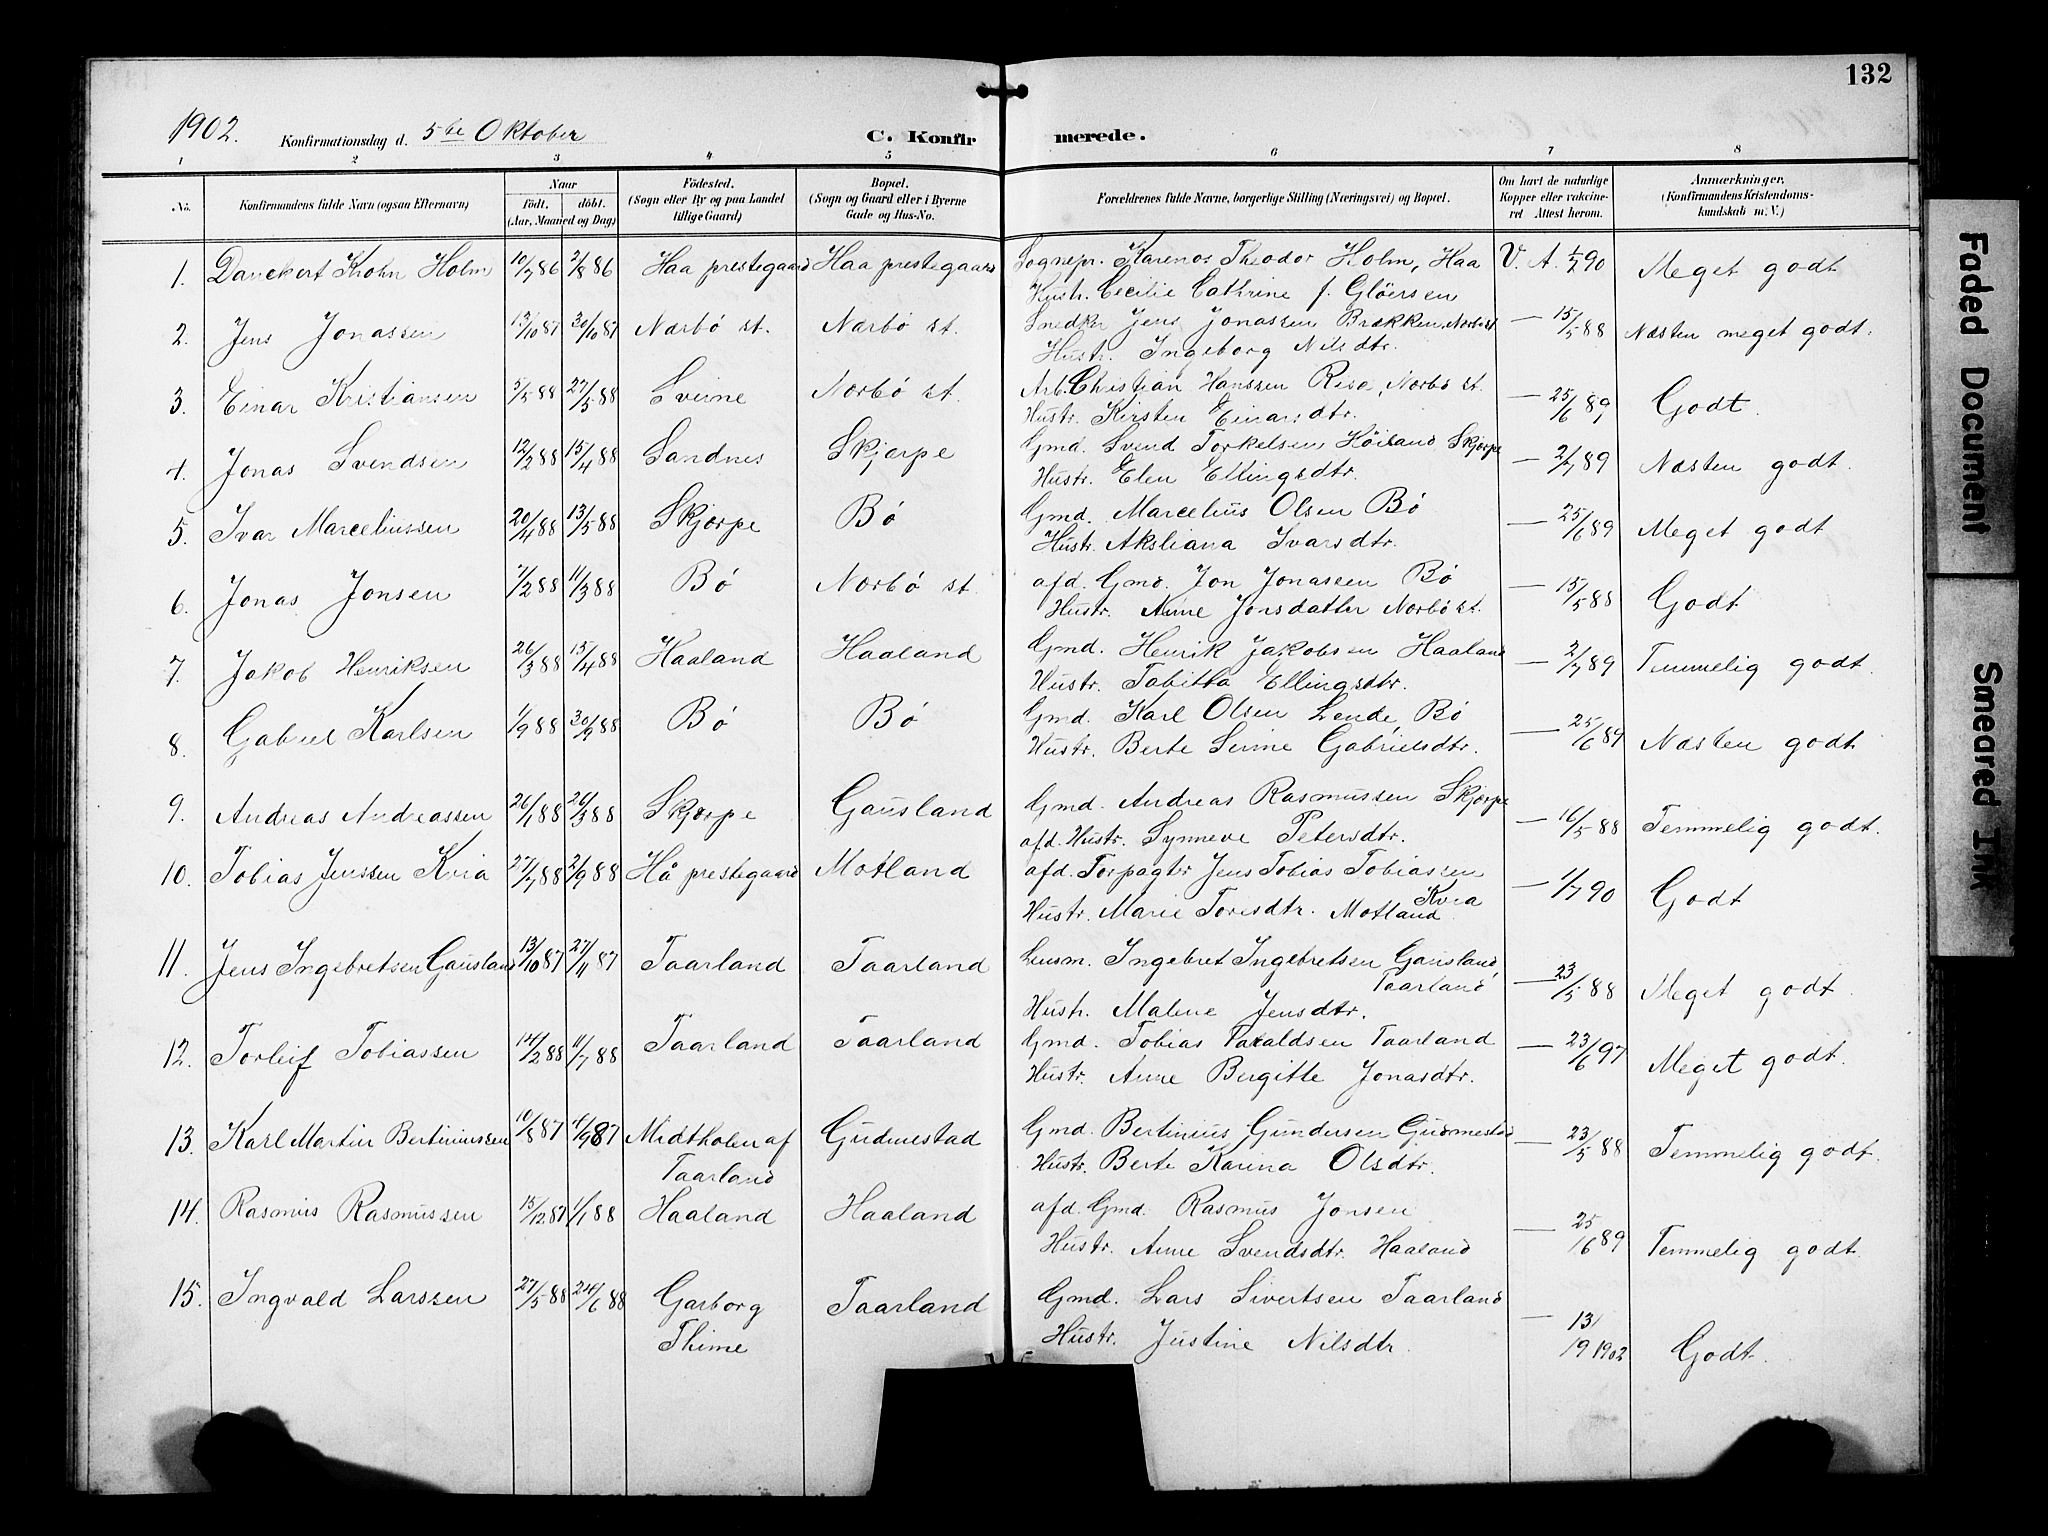 132
1902. Konfirmationsdag d. 5te Oktober C. Konfirmerede.
1 2 3 4 5 6 7 8
No. Konfirmandens fulde Navn (ogsaa Efternavn) Naar Födt. döbt. (Aar, Maaned og Dag) Födested. (Sogn eller By og paa Landet tillige Gaard) Bopæl. (Sogn og Gaard eller i Byerne Gade og Hus-No. Foreldrenes fulde Navne, borgerlige Stilling (Næringsvei) og Bopæl. Om havt de naturlige Kopper eller vakcineret Attest herom. Anmærkninger. (Konfirmandens Kristendomskundskab m. V.)
1. Danckert Krohn Holm 10/7 86 2/8 86 Haa prestegaard Haa prestegaard Sognepr. Karenos Theodor Holm, Haa V. A. 1/7 90 Meget godt
Hustr. Cecilie Cathrine f. Glöersen
2. Jens Jonassen 13/10 87 30/10 87 Nærbö st. Nærbö st. Snedker Jens Jonassen Brækken, Nærbö st — 15/5 88 Næsten meget godt.
Hustr. Ingeborg Nilsdtr.
3. Einar Kristiansen 5/5 88 27/5 88 Sviine Nærbö st. Arb. Christian Hanssen Rise, Nærbö st. — 25/6 89 Godt.
Hustr. Kirsten Einarsdtr.
4. Jonas Svendsen 12/2 88 15/4 88 Sandnes Skjærpe Gmd. Svend Torkelsen Höiland Skjærpe — 2/7 89 Næsten godt.
Hustr. Elen Ellingsdtr.
5. Ivar Marceliussen 20/4 88 13/5 88 Skjærpe Bö Gmd. Marcelius Olsen Bö — 25/6 89 Meget godt
Hustr. Aksliana Ivarsdtr.
6. Jonas Jonsen 7/2 88 11/3 88 Bö Nærbö st. afd. Gmd. Jon Jonassen Bö — 15/5 88 Godt
Hustr. Anne Jonsdatter Nærbö st.
7. Jakob Henriksen 26/3 88 15/4 88 Haaland Haaland Gmd. Henrik Jakobsen Haaland — 2/7 89 Temmelig godt.
Hustr. Tabitha Ellingsdtr.
8. Gabriel Karlsen 1/9 88 30/9 88 Bö Bö Gmd. Karl Olsen Lende, Bö — 25/6 89 Næsten godt
Hustr. Berte Serine Gabrielsdtr.
9. Andreas Andreassen 26/1 88 26/3 88 Skjærpe Gausland Gmd. Andreas Rasmussen Skjærpe — 16/5 88 Temmelig godt.
afd. Hustr. Synneve Petersdtr.
10. Tobias Jenssen Kvia 27/7 88 2/9 88 Hå prestegaard Motland afd. Forpagtr Jens Tobias Tobiassen — 1/7 90 Godt
Kvia
Hustr. Marie Toresdtr. Motland
11. Jens Ingebretsen Gausland 13/10 87 27/11 87 Taarland Taarland Lensm. Ingebret Ingebretsen Gausland, — 23/5 88 Meget godt.
Taarland
Hustr. Malene Jensdtr.
12. Torleif Tobiassen 14/2 88 11/7 88 Taarland Taarland Gmd. Tobias Taraldsen Taarland — 23/6 97 Meget godt.
Hustr. Anne Bergitte Jonasdtr.
13. Karl Martin Bertiniussen 10/8 87 11/9 87 Midtholen af Gudmestad Gmd. Bertinius Gundersen Gudmestad — 23/5 88 Temmelig godt.
Taarland Hustr. Berte Karina Olsdtr.
14. Rasmus Rasmussen 15/12 87 1/1 88 Haaland Haaland afd. Gmd. Rasmus Jonsen — 25/6 89 Temmelig godt.
Hustr. Anne Svendsdtr. Haaland
15. Ingvald Larssen 27/5 88 24/6 88 Garborg Taarland Gmd. Lars Sivertsen Taarland — 13/9 1902 Godt.
Thime Hustr. Justine Nilsdtr.
Faded Document
Smeared Ink